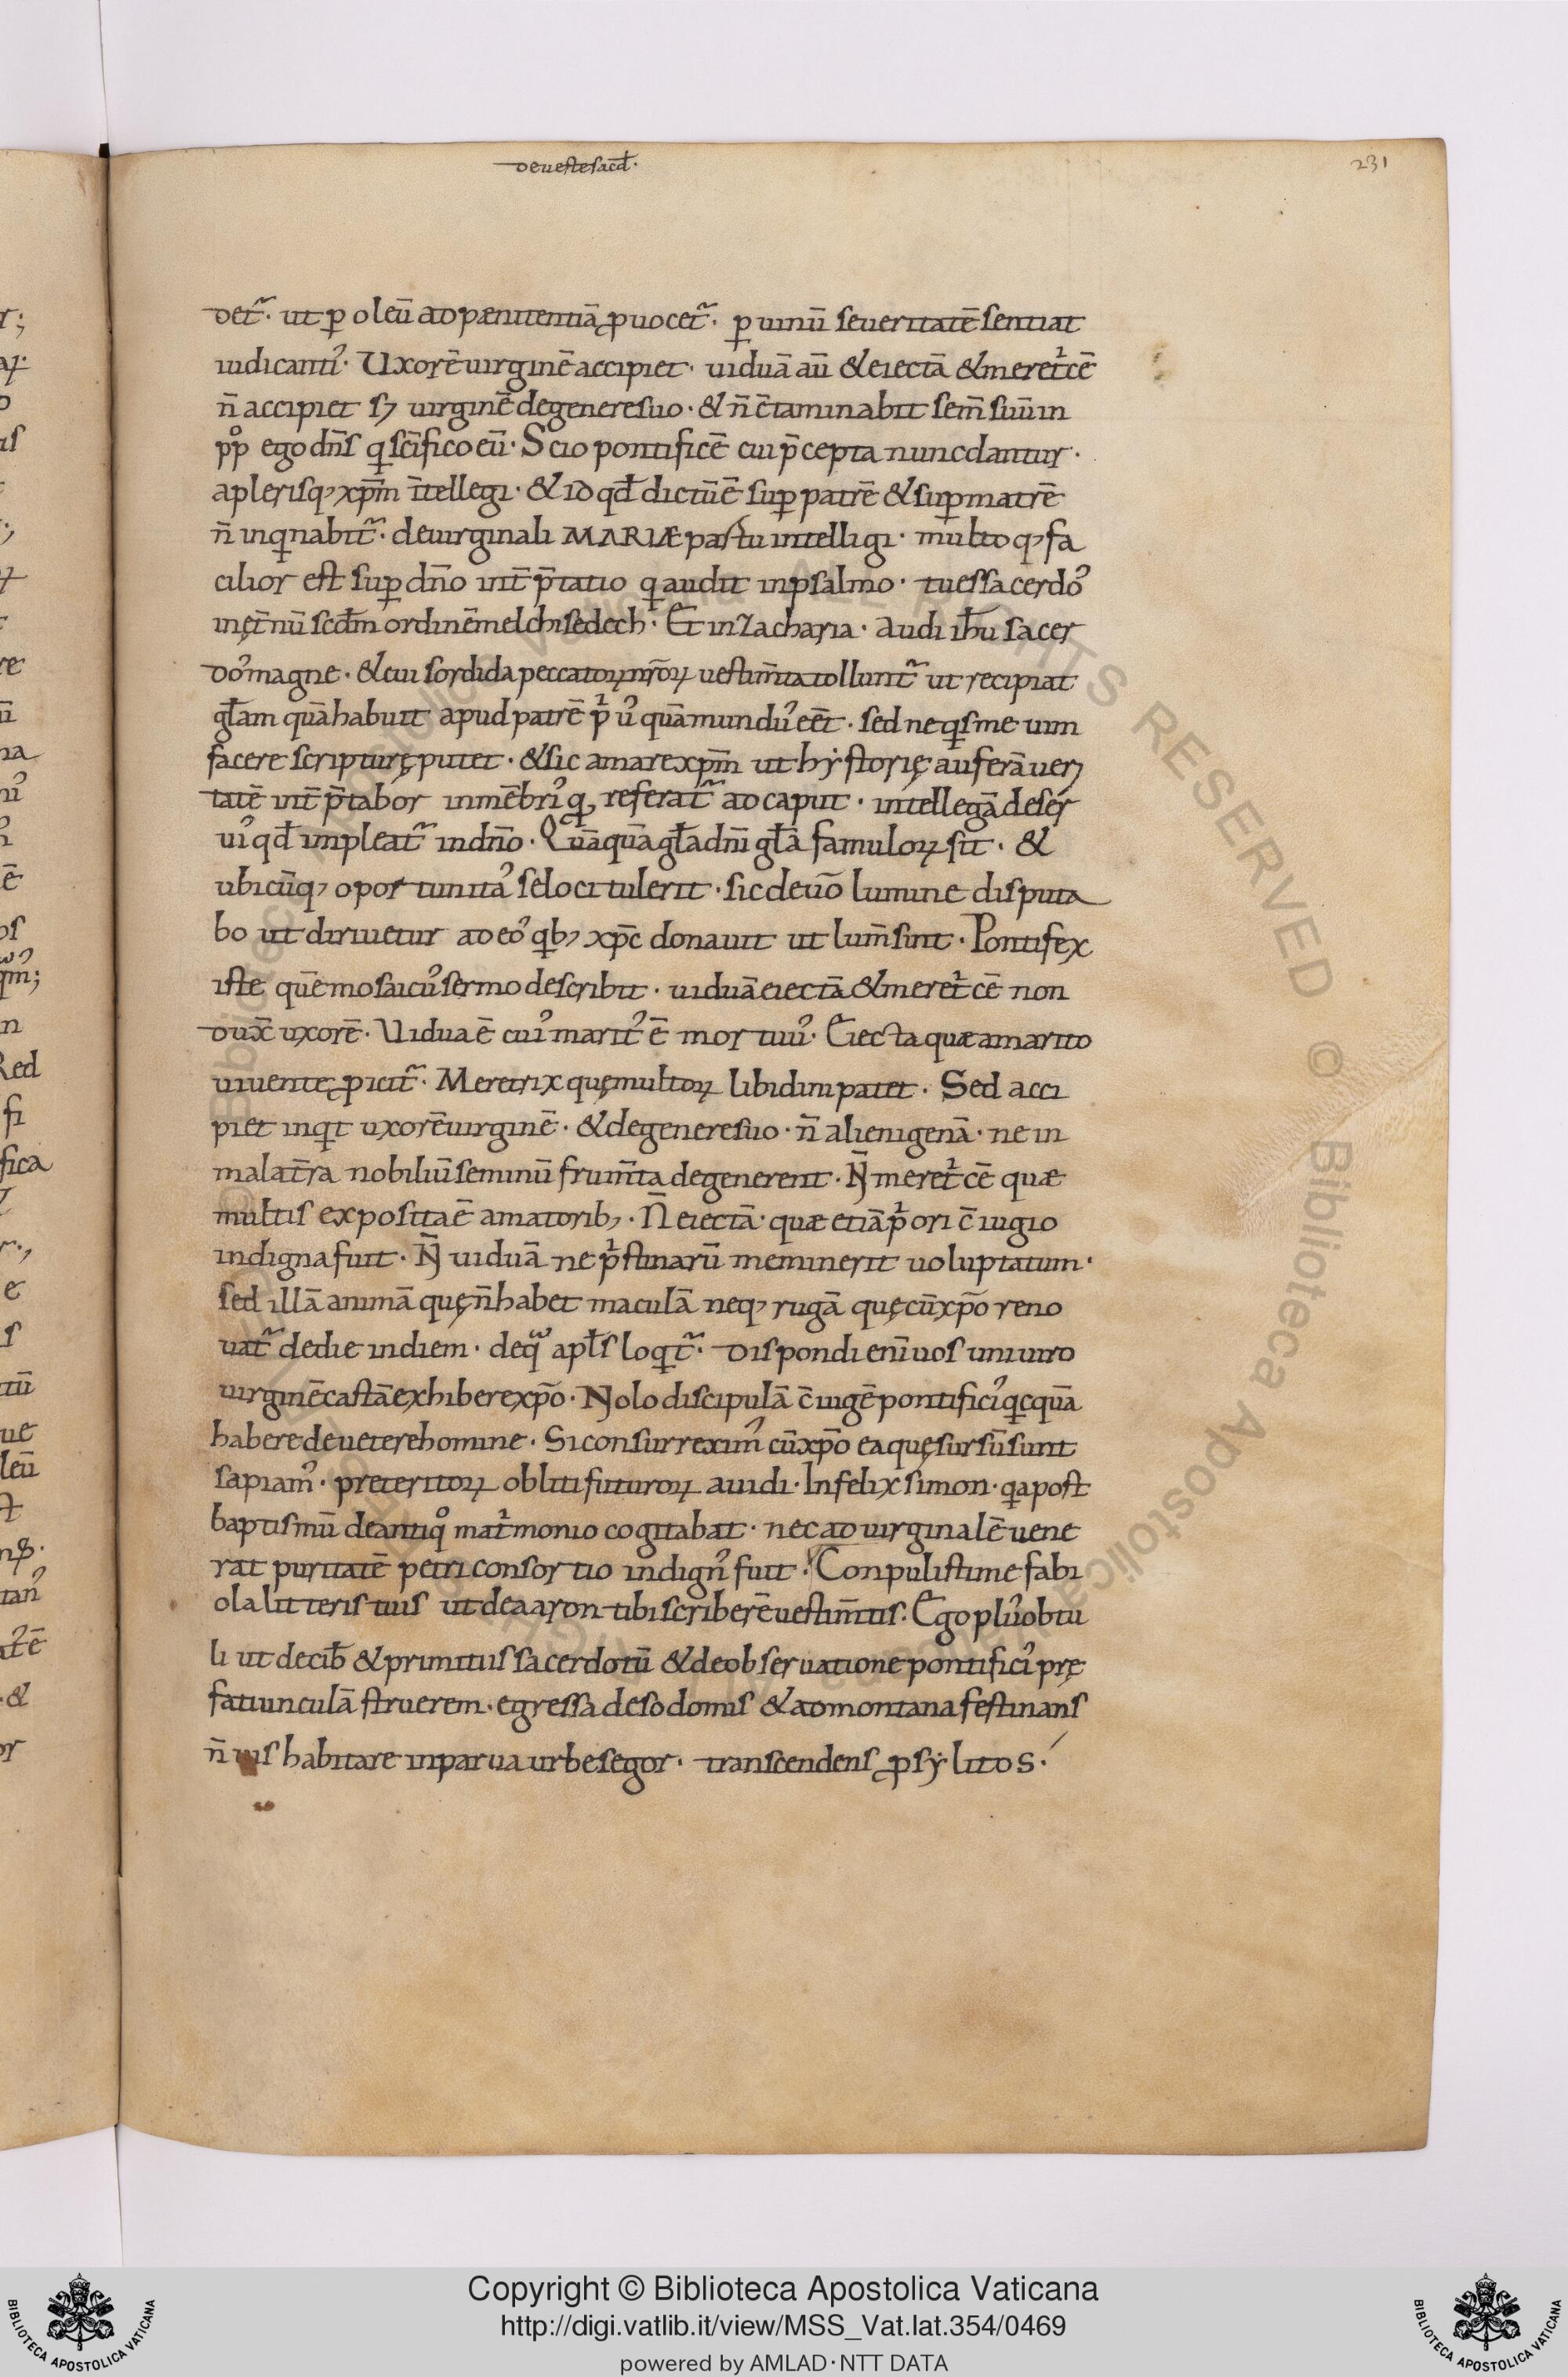 deueste sacđ.
231
det᷑· ut ꝑ oleū ad pænitentiā ꝓuocet᷑· ꝑ uinū seueritatē sentiat
iudicantiꝰ· Uxorē uirginē accipiet· uiduā aū & eiectā & meret͛cē
n̄ accipiet sꝫ uirginē de genere suo· & n̄ c̄taminabit sem̄ suū in
pp̊ ego dn̄s q sc̄ifico eū· Scio pontificē cui p̄cepta nunc dantur·
a plerisqꝫ xp̄m ītellegi· & id qđ dictū ē suꝑ patrē & suꝑ matrē
n̄ inqnabit᷑· de uirginali MARIÆ partu intelligi· multoqꝫ fa
cilior est suꝑ dn̄o int̄p̄tatio q audit in psalmo· tu es sacerdoꝰ
in ęt̄nū scđm ordinē melchisedech· Et in Zacharia· Audi ih̄u sacer
doꝰ magne· & cui sordida peccatoꝝ nr̄oꝝ uestim̄ta tollunt᷑ ut recipiat
gl̄am quā habuit apud patrē p͛uꝰ quā mundꝰ eēt· sed ne qs me uim
facere scripturę putet· & sic amare xp̄m ut hẏstorię auferā ueri
tatē int̄p̄tabor in mēbriꝰ q referat᷑ ad caput· intellegā de ser
uiꝰ qđ impleat᷑ in dn̄o· Quāquā gl̄a dn̄i gl̄a famuloꝝ sit· &
ubicūqꝫ oportunitaꝰ se loci tulerit· sic de uō lumine disputa
bo ut diriuetur ad eoꝰ qbꝫ xp̄c donauit ut lum̄ sint· Pontifex
iste quē mosaicuꝰ sermo describit· uiduā eiectā & meret͛cē non
dux̄ uxorē· Uidua ē cuiꝰ maritꝰ ē mortuuꝰ· Eiecta quæ a marito
uiuente ꝓicit᷑· Meretrix quę multoꝝ libidini patet· Sed acci
piet inqt uxorē uirginē· & de genere suo· n̄ alienigenā· ne in
mala t̄ra nobiliū seminū frum̄ta degenerent· N̄ meret͛cē quæ
multis exposita ē amatoribꝫ· N̄ eiectā· quæ etiā p͛ori c̄iugio
indigna fuit· N̄ uiduā ne p͛stinarū meminerit uoluptatum·
sed illā animā quę n̄ habet maculā neqꝫ rugā quę cū xp̄o reno
uat᷑ de die in diem· de qͣ apl̄s loqt᷑· Dispondi enī uos uni uiro
uirginē castā exhibere xp̄o· Nolo discipulā c̄iugē pontificiꝰ qcquā
habere de uetere homine· Si consurreximꝰ cū xp̄o ea quę sursū sunt
sapiamꝰ· preteritoꝝ obliti futuroꝝ auidi· Infelix simon· q a post
baptismū de antiqͦ mat͛monio cogitabat· nec ad uirginalē uene
rat puritatē petri consortio indignꝰ fuit· Conpulisti me fabi
ola litteris tuis ut de aaron tibi scriberē uestim̄tis· Ego plꝰ obtu
li ut de cib̄ & primitiis sacerdotū & de obseruatione pontificiꝰ prę
fatiunculā struerem· egressa de sodomis & ad montana festinans
n̄ uis habitare in parua urbe segor· transcendens ꝓsẏlitos·
Copyright © Biblioteca Apostolica Vaticana
http://digi.vatlib.it/view/MSS_Vat.lat.354/0469
powered by AMLAD·NTT DATA